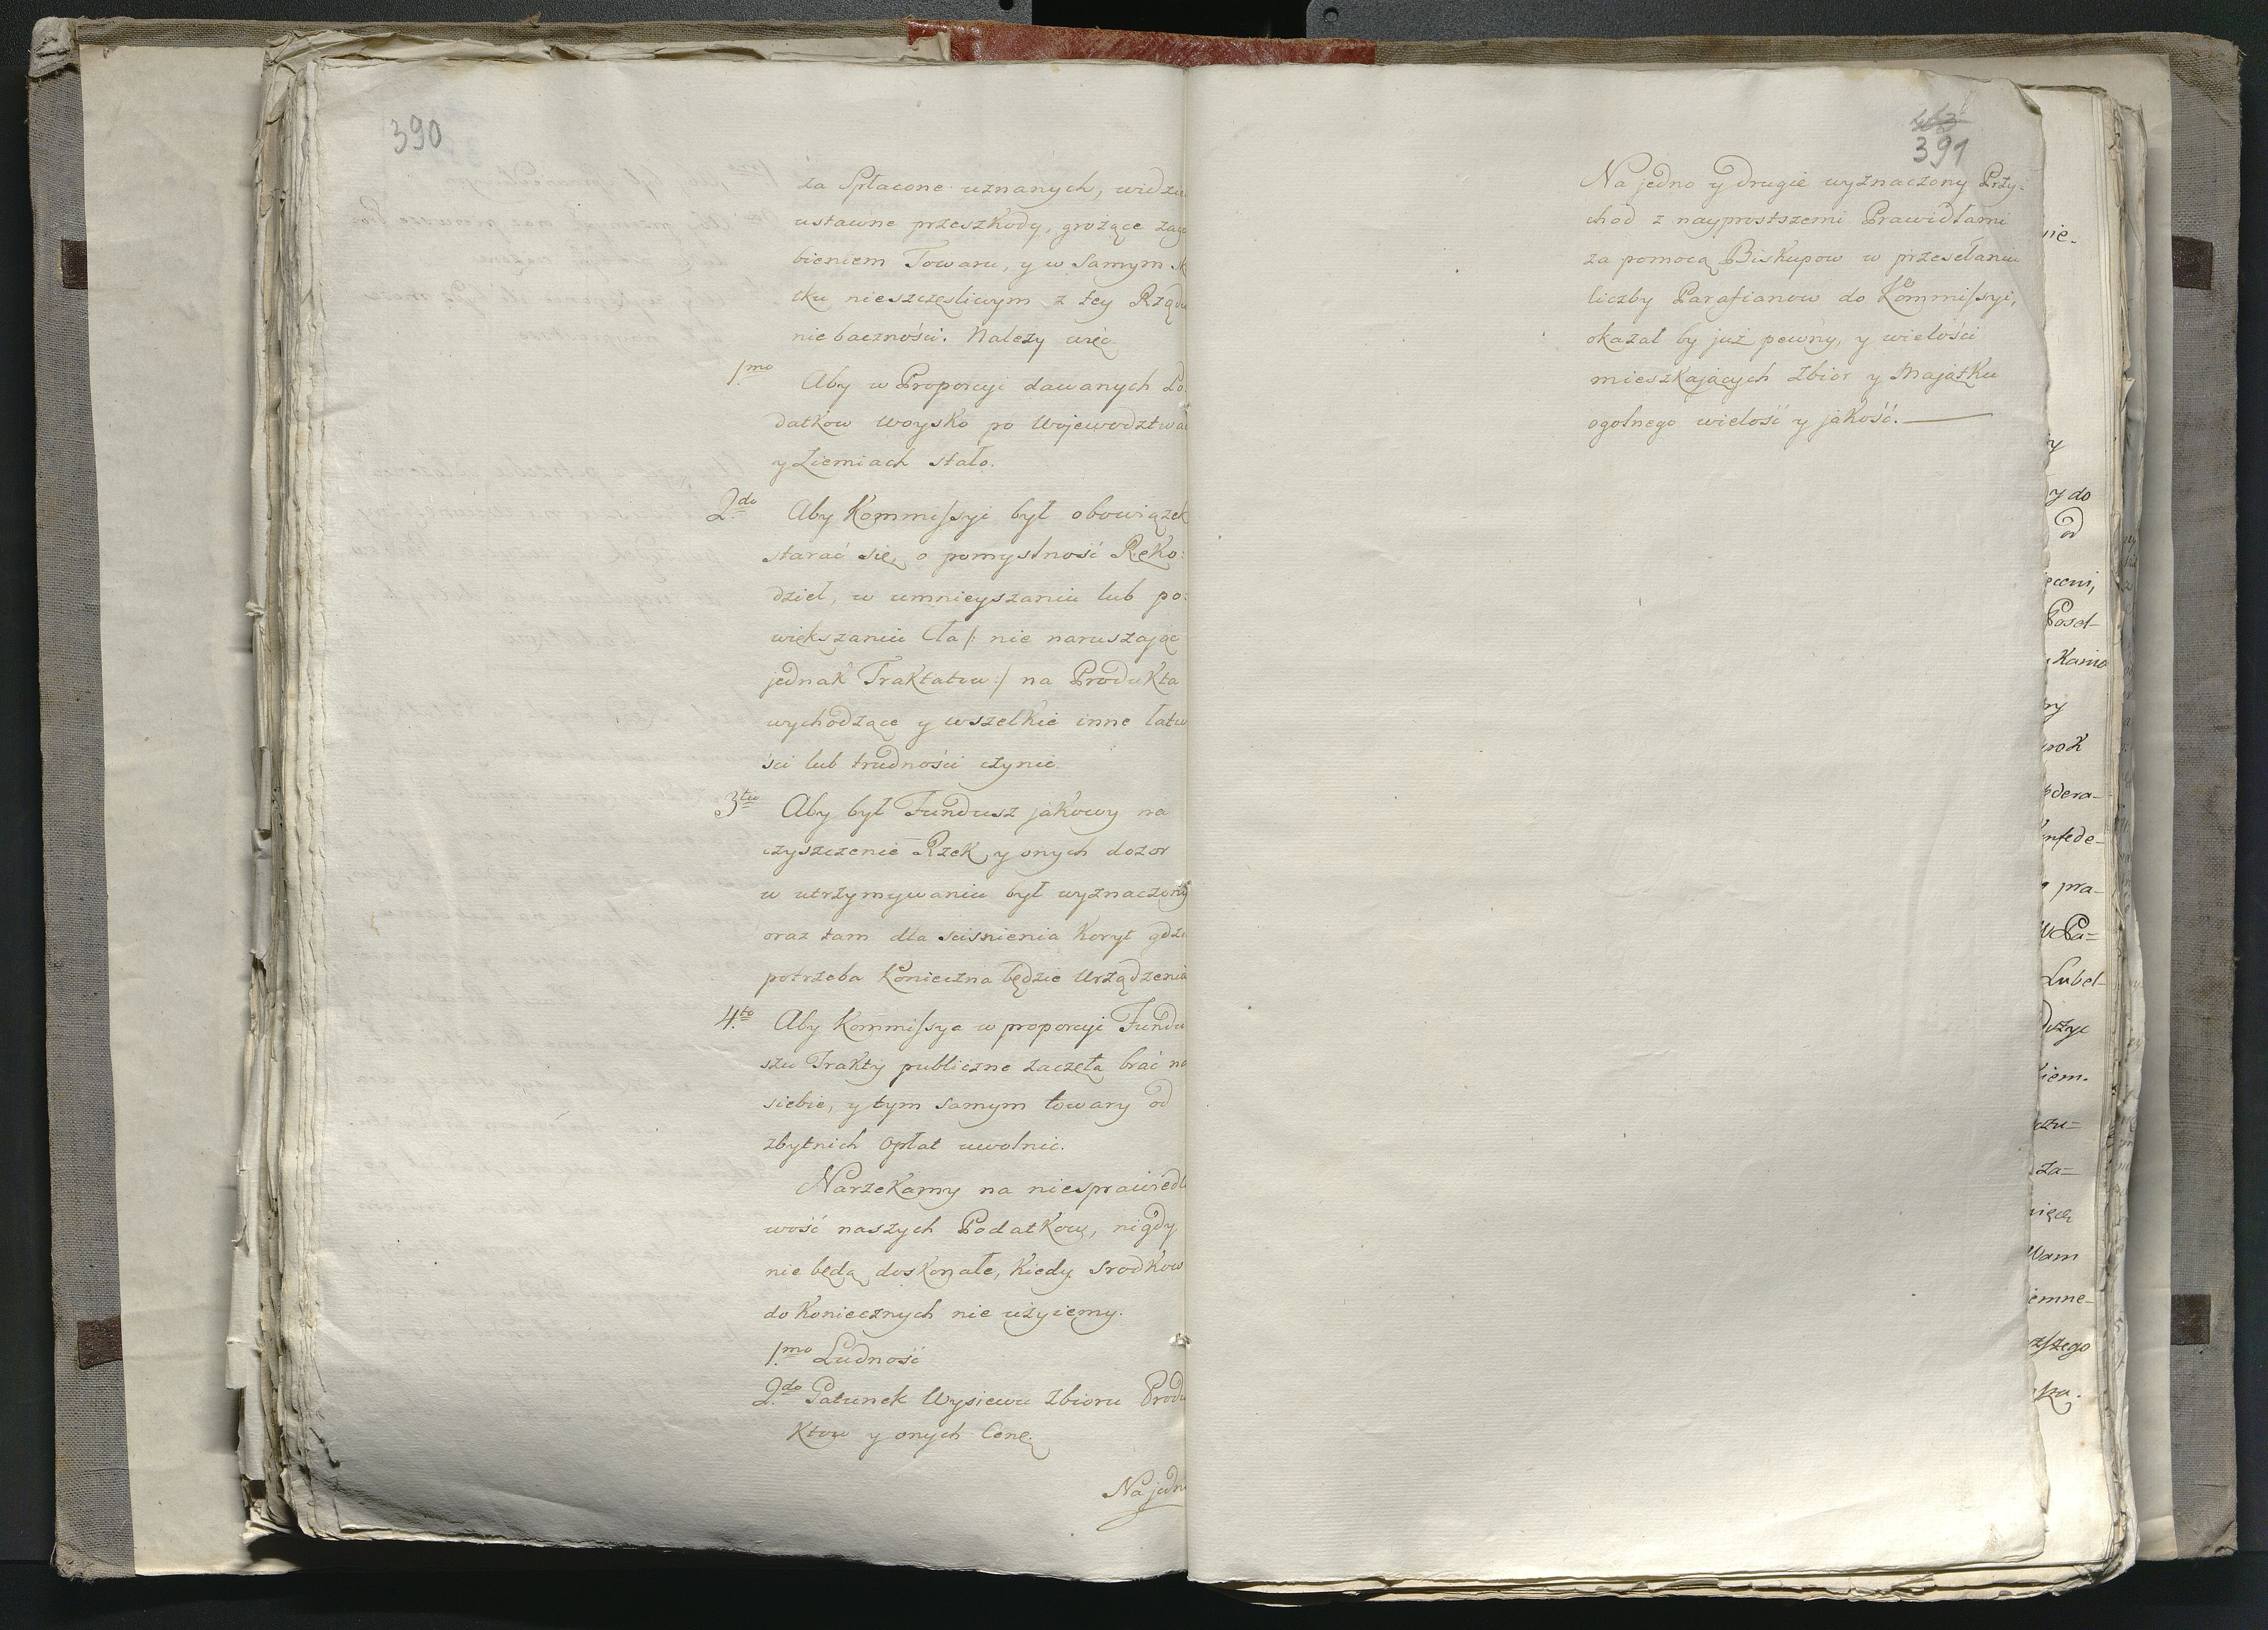 390
za Spłacone uznanych, widzu
ustawne przeszkody, grożące zagu
bieniem Towaru, y w samym
tku nieszczęsliwym z tey Rządu
niebaczności. Należy więc
1.mo Aby w Proporcyi dawanych Po
datkow woysko po Wojewodztwa
y Ziemiach stało.
2.do Aby Kommissyi był obowiązek
starać się o pomyslność Ręko:
dzieł, w umnieyszaniu lub po:
większaniu Cła /: nie naruszając
jednak Traktatu :/ na Produkta
wychodzące y wszelkie inne łatw
ści lub trudności czynic.
3.tio Aby był Fundusz jakowy na
czyszczenie Rzek y onych dozor
w utrzymywaniu był wyznaczony
oraz tam dla scisnienia Koryt gdzi
potrzeba Konieczna będzie Urządzenia
4.to Aby Kommissya w proporcyi Fundu
szu Trakty publiczne zaczęła brać na
siebie, y tym samym towary od
zbytnich Opłat uwolnic.
Narzekamy na niesprawiedli
wość naszych Podatkow, nigdy
nie będą doskonałe, Kiedy srodkow
do Koniecznych nie użyiemy.
1.mo Ludność
2.do Gatunek Wysiewu zbioru Produ
Ktow y onych Cenę.
Na jedno
391
Na jedno y drugie wyznaczony Przy:
chod z nayprostszemi Prawidłami
za pomocą Biskupow w przesełaniu
liczby Parafianow do Kommissyi,
okazał by już pewny, y wielości
mieszkających zbior y Majątku
ogolnego wielość y jakość.
nie.
y
y do
d
Posel-
ny
dera-
nfede-
pra-
W Pa=
Lubel-
dszyc
iem.
szu=
za=
Wam
iemne-